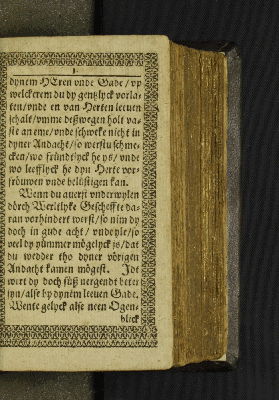 dynem HEren vnde Gade/ vp
welckerem du dy gentzlyck vorla-
ten/ vnde en van Herten leeuen
schalt/ vmme deßwegen holt va-
ste an eme/ vnde schwecke nicht in
dyner Andacht/ so werstu schme-
cken/ wo fründtlyck he ys/ vnde
wo leefflyck he dyn Herte vor-
fröuwen vnde belüstigen kan.
Wenn du auerst vnderwylen
dörch Wertlyke Gescheffte da-
ran vorhindert werst/ so nim dy
doch in gude acht/ vnde yle/ so
veel dy yümmer mögelyck is/ dat
du wedder tho dyner vörigen
Andacht kamen mögest. Idt
wert dy doch süß nergendt beter
syn/ alse by dynem leeuen Gade.
Wente gelyck alse neen Ogen-
blick